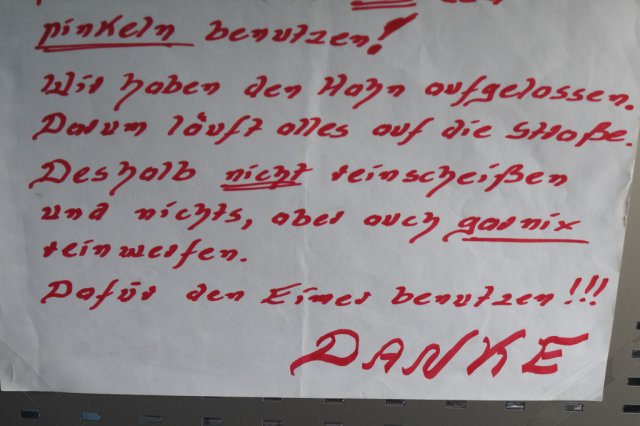 pinkeln benutzen!
Wir haben den Hahn aufgelassen.
Darum läuft alles auf die Straße.
Deshalb nicht reinscheißen
und nichts, aber auch garnix
reinwerfen.
Dafür den Eimer benutzen!!!
DANKE